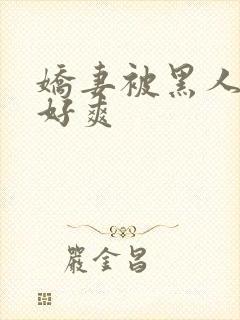 嬌妻被黑人
好爽
嚴金昌